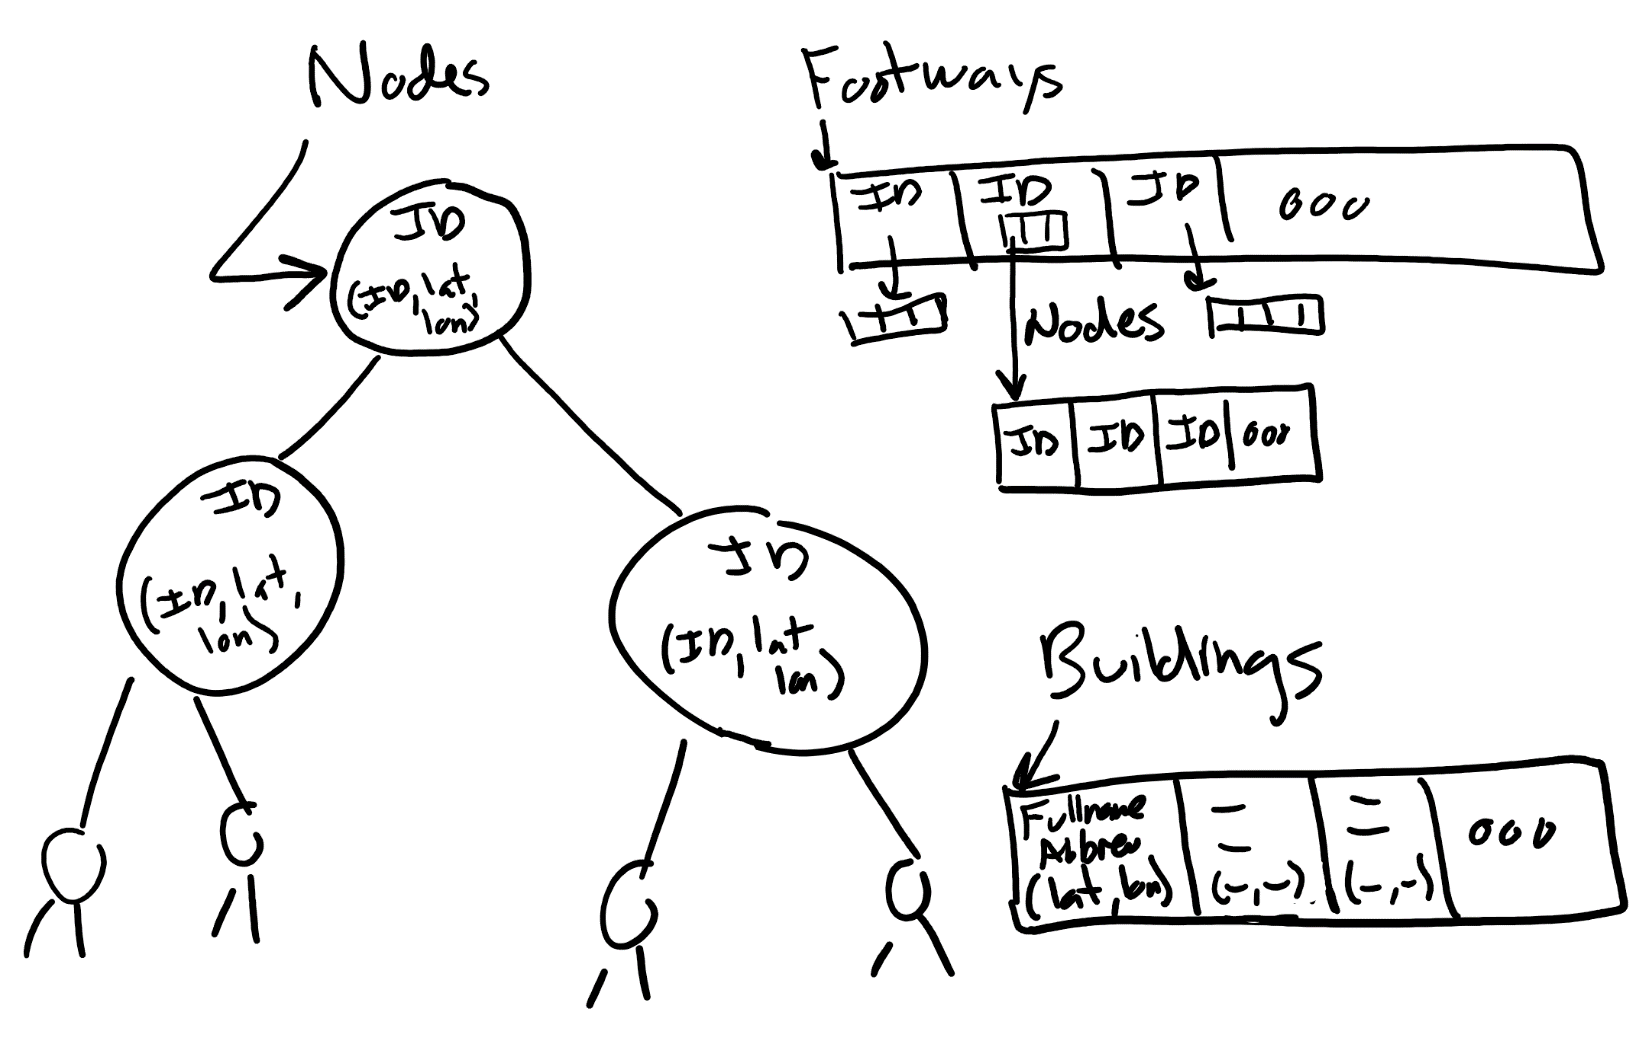 Nodes
ID
(ID, lat,
lon)
ID
(ID, lat,
lon)
ID
(ID, lat
lon)
Footways
ID
ID
ID
ooo
Nodes
ID
ID
ID
ooo
Buildings
Fullname
Abbrev
(lat, lon)
(-,-)
(-,-)
ooo